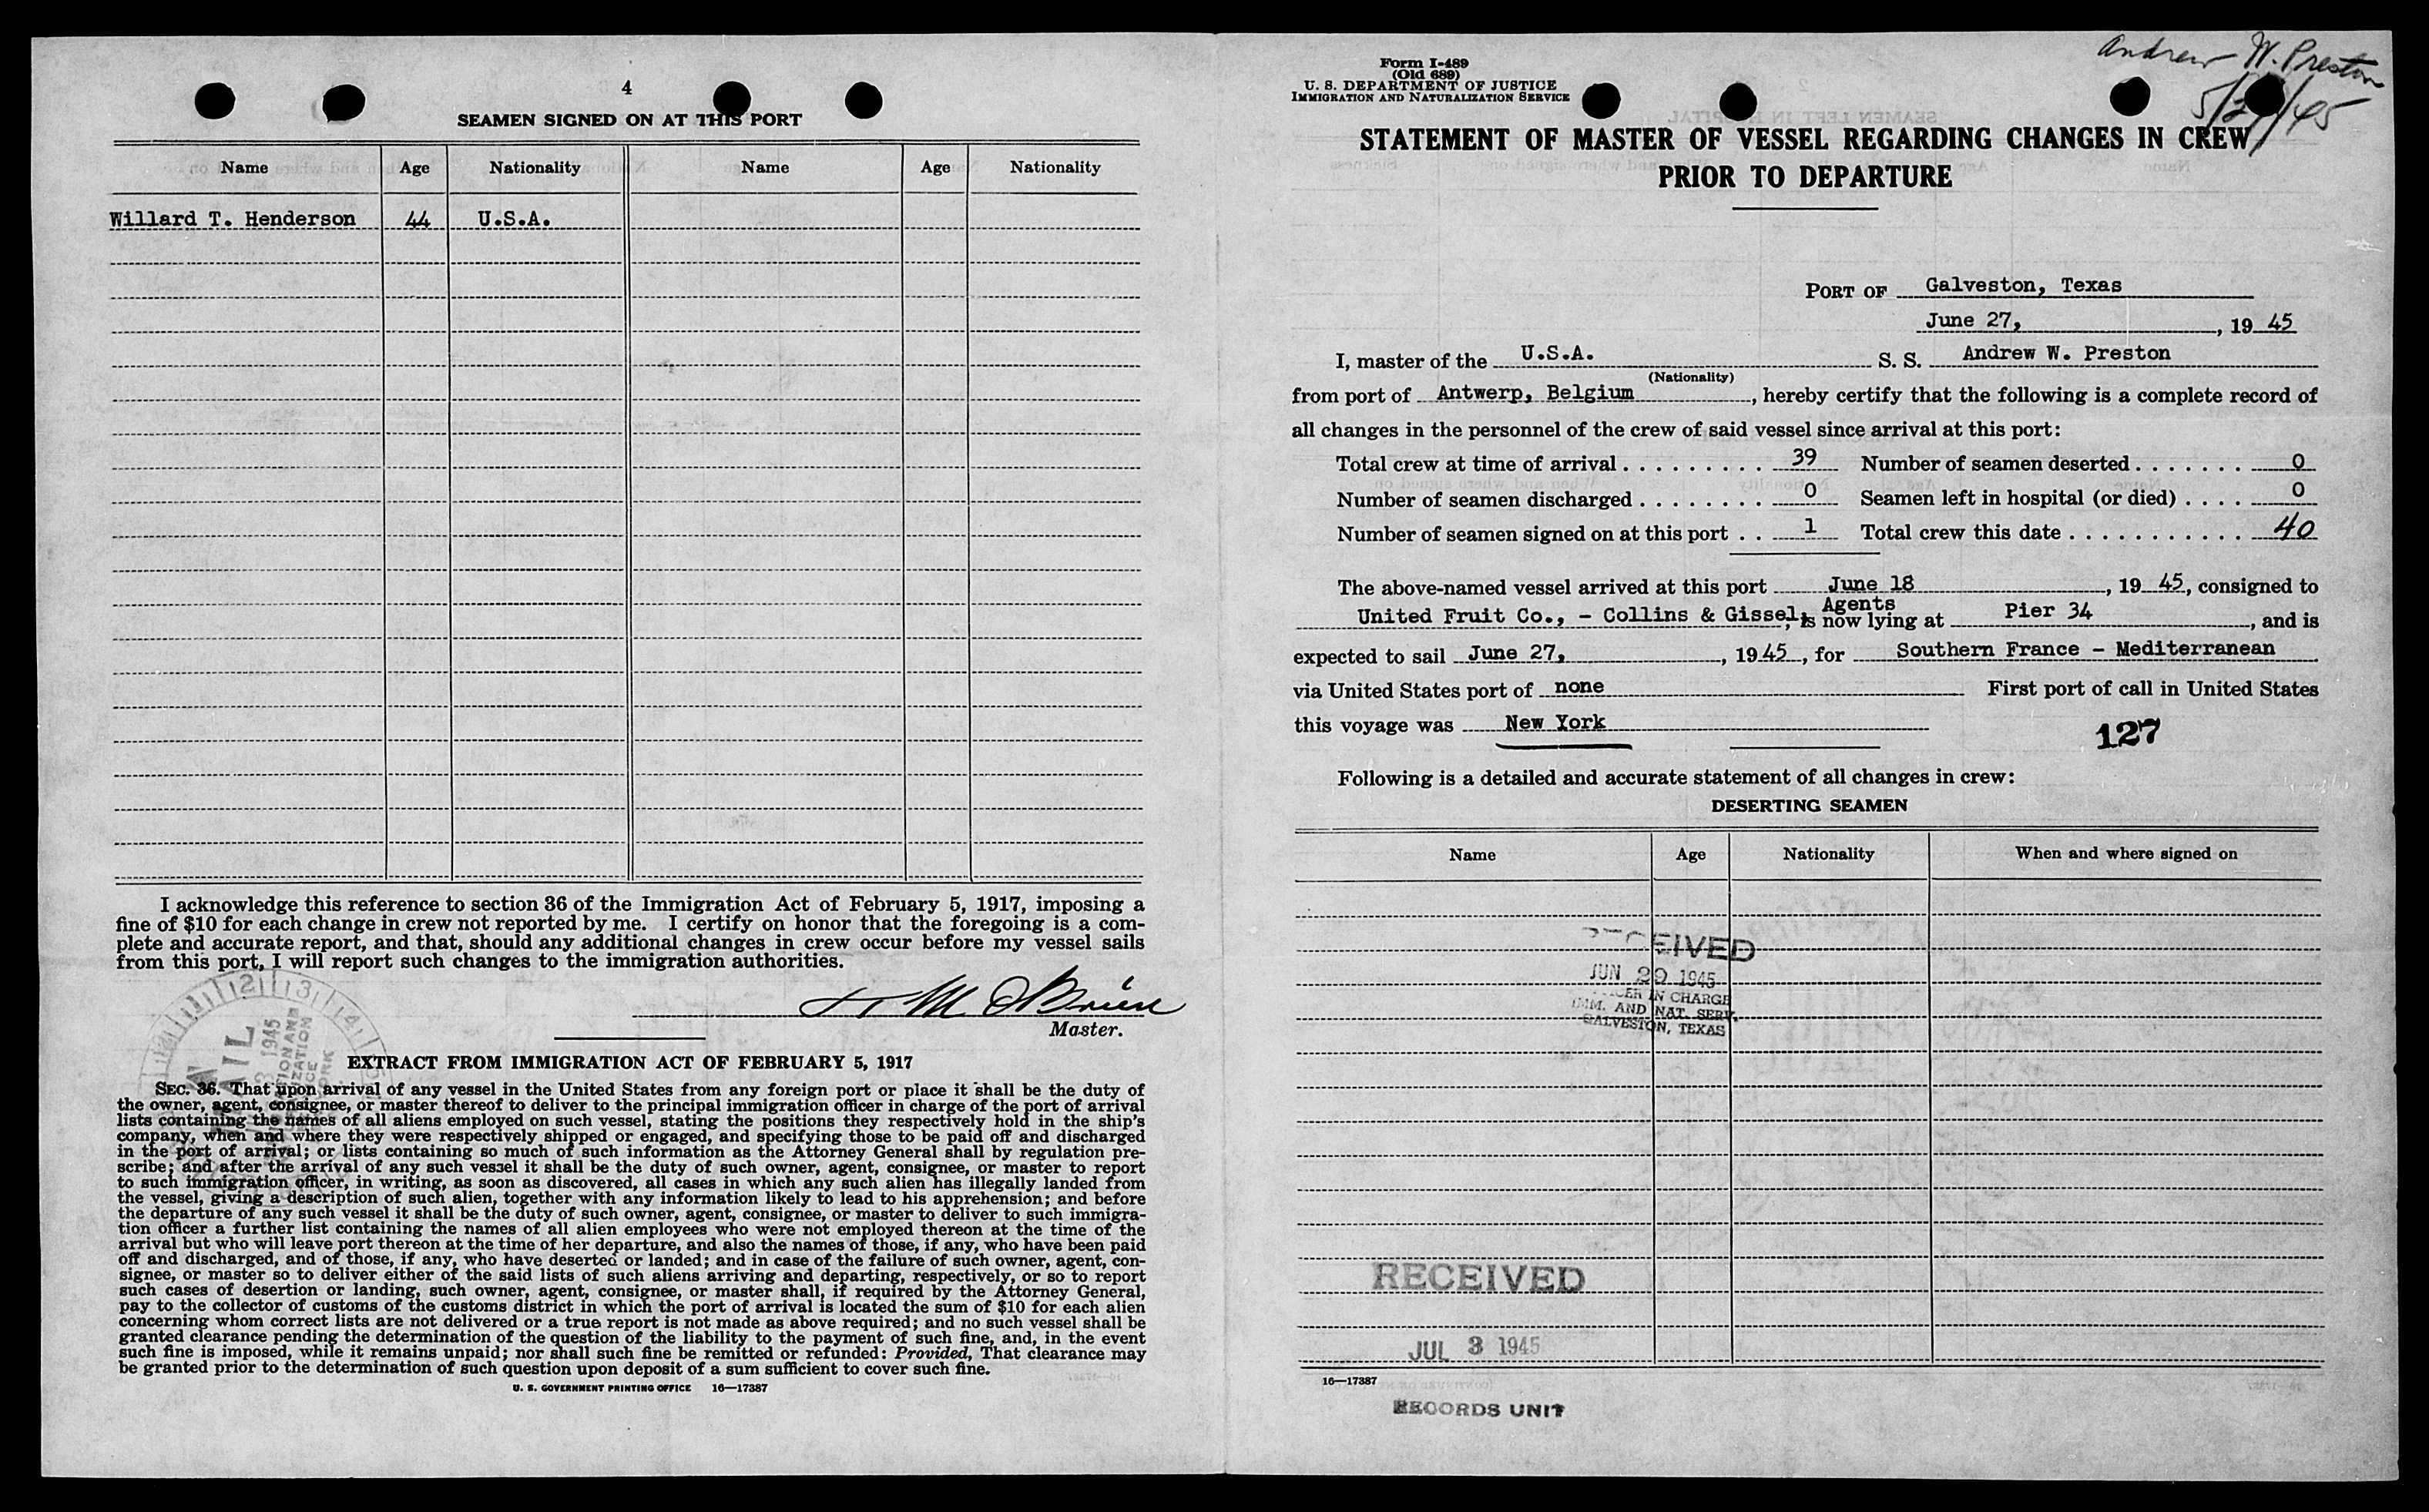 4
SEAMEN SIGNED ON AT THIS PORT
Name Age Nationality Name Age Nationality
Willard T. Henderson 44 U.S.A.
I acknowledge this reference to section 36 of the Immigration Act of February 5, 1917, imposing a
fine of $10 for each change in crew not reported by me. I certify on honor that the foregoing is a com-
plete and accurate report, and that, should any additional changes in crew occur before my vessel sails
from this port, I will report such changes to the immigration authorities.
M O'Brien
Master.
EXTRACT FROM IMMIGRATION ACT OF FEBRUARY 5, 1917
SEC. 36. That upon arrival of any vessel in the United States from any foreign port or place it shall be the duty of
the owner, agent, consignee, or master thereof to deliver to the principal immigration officer in charge of the port of arrival
lists containing the names of all aliens employed on such vessel, stating the positions they respectively hold in the ship's
company, when and where they were respectively shipped or engaged, and specifying those to be paid off and discharged
in the port of arrival; or lists containing so much of such information as the Attorney General shall by regulation pre-
scribe; and after the arrival of any such vessel it shall be the duty of such owner, agent, consignee, or master to report
to such immigration officer, in writing, as soon as discovered, all cases in which any such alien has illegally landed from
the vessel, giving a description of such alien, together with any information likely to lead to his apprehension; and before
the departure of any such vessel it shall be the duty of such owner, agent, consignee, or master to deliver to such immigra-
tion officer a further list containing the names of all alien employees who were not employed thereon at the time of the
arrival but who will leave port thereon at the time of her departure, and also the names of those, if any, who have been paid
off and discharged, and of those, if any, who have deserted or landed; and in case of the failure of such owner, agent, con-
signee, or master so to deliver either of the said lists of such aliens arriving and departing, respectively, or so to report
such cases of desertion or landing, such owner, agent, consignee, or master shall, if required by the Attorney General,
pay to the collector of customs of the customs district in which the port of arrival is located the sum of $10 for each alien
concerning whom correct lists are not delivered or a true report is not made as above required; and no such vessel shall be
granted clearance pending the determination of the question of the liability to the payment of such fine, and, in the event
such fine is imposed, while it remains unpaid; nor shall such fine be remitted or refunded: Provided, That clearance may
be granted prior to the determination of such question upon deposit of a sum sufficient to cover such fine.
U. S. GOVERNMENT PRINTING OFFICE 16—17387
Andrew W. Preston
Form I-489
(Old 689)
U. S. DEPARTMENT OF JUSTICE
IMMIGRATION AND NATURALIZATION SERVICE
STATEMENT OF MASTER OF VESSEL REGARDING CHANGES IN CREW
PRIOR TO DEPARTURE
PORT OF Galveston, Texas
June 27, , 19 45
I, master of the U.S.A. S. S. Andrew W. Preston
(Nationality)
from port of Antwerp, Belgium , hereby certify that the following is a complete record of
all changes in the personnel of the crew of said vessel since arrival at this port:
Total crew at time of arrival . . . . . . . . . . 39 Number of seamen deserted . . . . . . . 0
Number of seamen discharged . . . . . . . . . 0 Seamen left in hospital (or died) . . . . 0
Number of seamen signed on at this port . . 1 Total crew this date . . . . . . . . . . . 40
The above-named vessel arrived at this port June 18 , 19 45, consigned to
United Fruit Co., - Collins & Gissel, Agents , is now lying at Pier 34 , and is
expected to sail June 27, , 1945 , for Southern France - Mediterranean
via United States port of none First port of call in United States
this voyage was New York
127
Following is a detailed and accurate statement of all changes in crew:
DESERTING SEAMEN
Name Age Nationality When and where signed on
RECEIVED
JUN 29 1945
IN CHARGE
IMM. AND NAT. SERV.
GALVESTON, TEXAS
RECEIVED
JUL 3 1945
16—17387
RECORDS UNIT